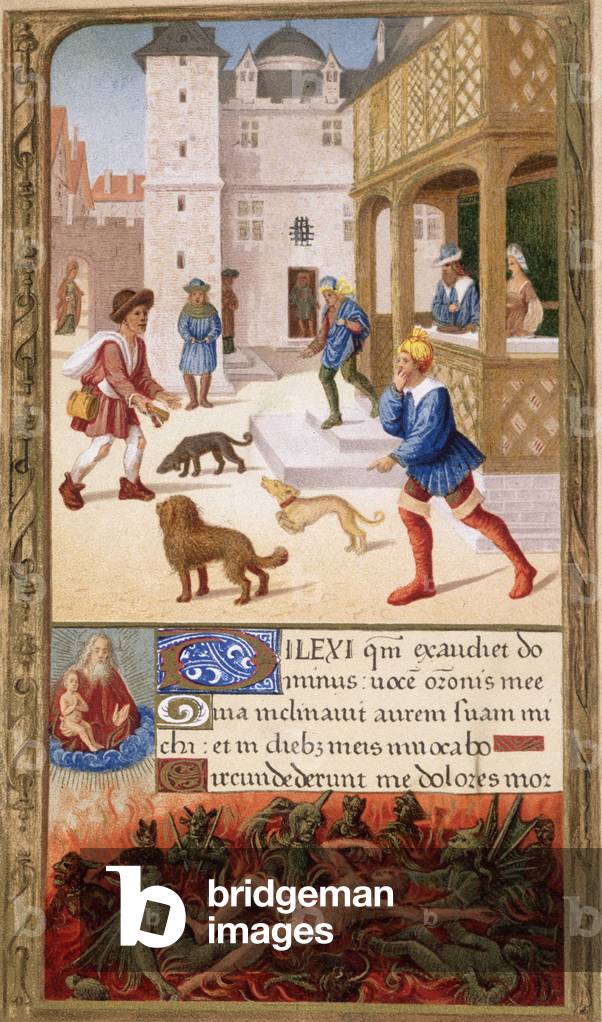 DILEXI qm̄ exaudiet do
minus: uocē or̄onis mee
Quia inclinauit aurem suam mi
chi: et in diebꝫ meis inuocabo
Circundederunt me dolores mor
b bridgeman
images